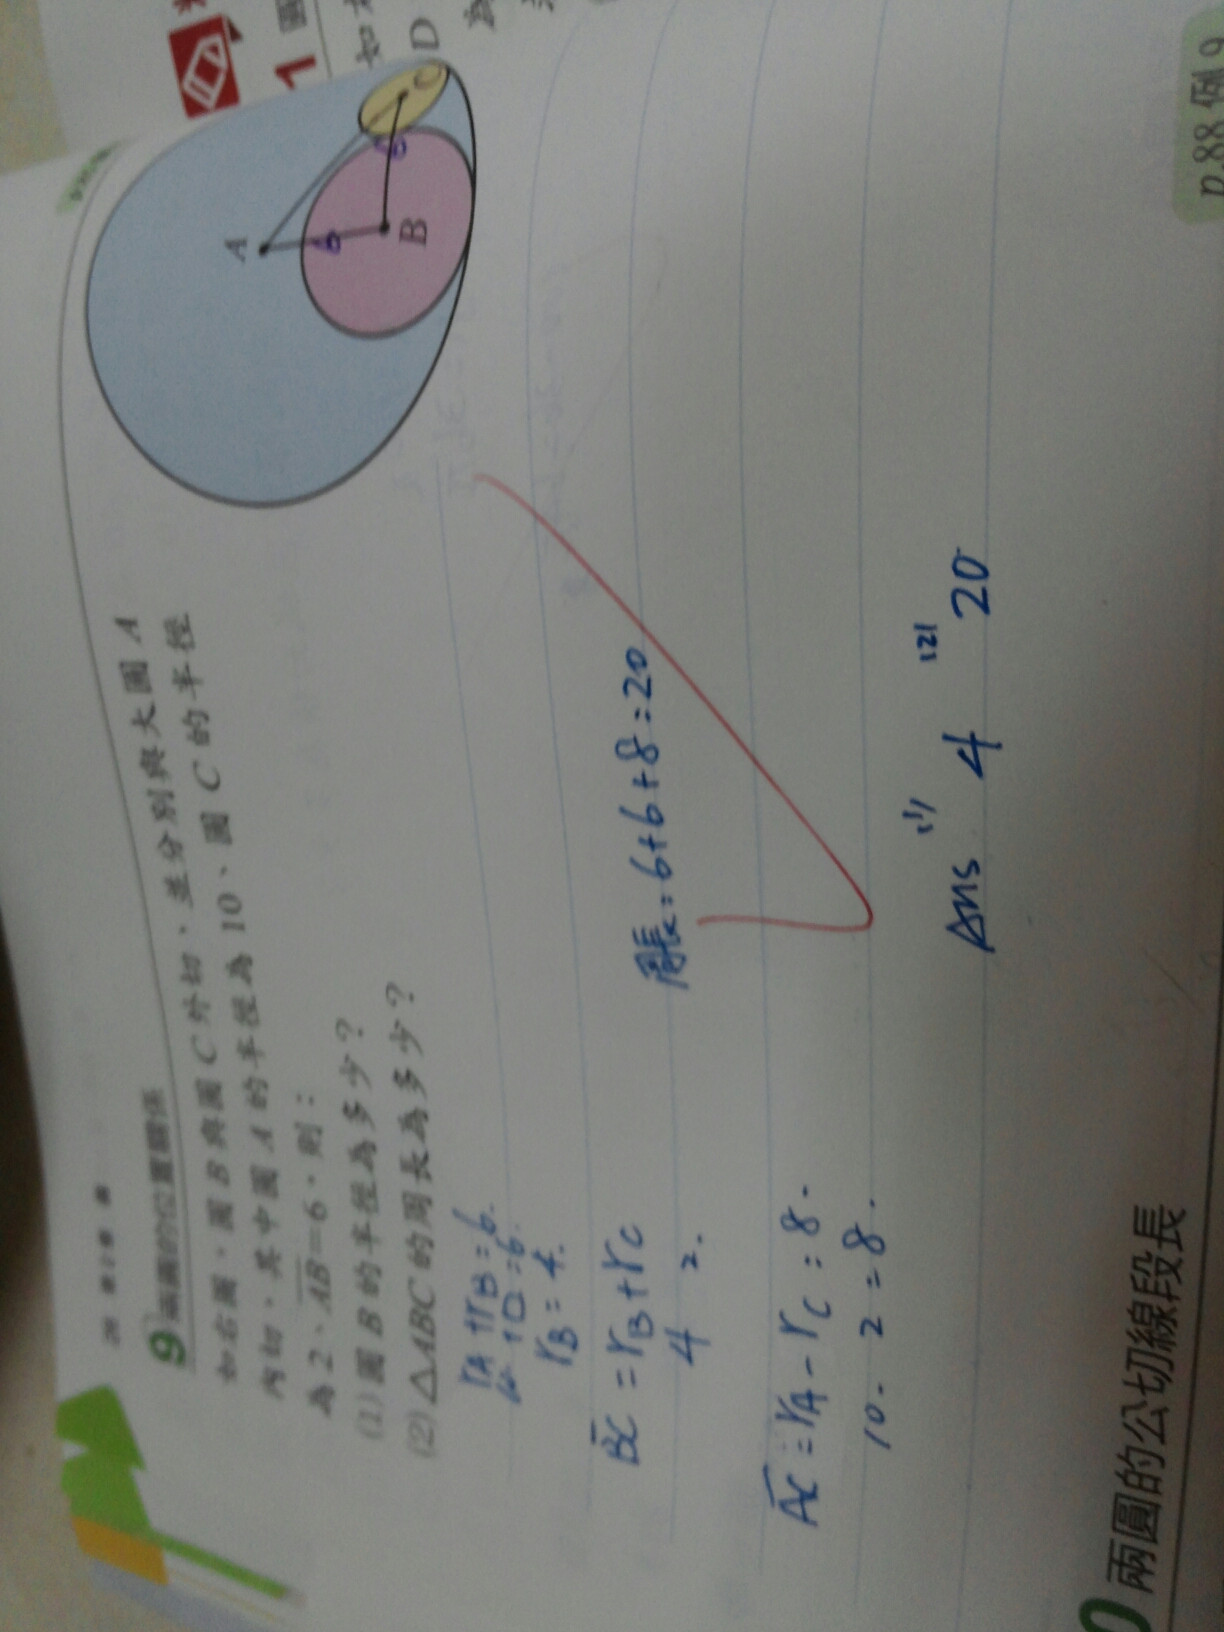 9 兩圓的位置關係
如右圖,圓B與圓C外切,並分別與大圓A
內切,其中圓A的半徑為10,圓C的半徑
為2,AB=6,則:
(1)圓B的半徑為多少?
(2)△ABC的周長為多少?
A
B
C
6
6
rB = 4.
BC = rB + rC
4 2.
周長=6+6+8=20
AC = rA - rC = 8.
10. 2 = 8.
Ans (1) 4 (2) 20
兩圓的公切線段長
p.88 例 9
1 圓
如
D
為